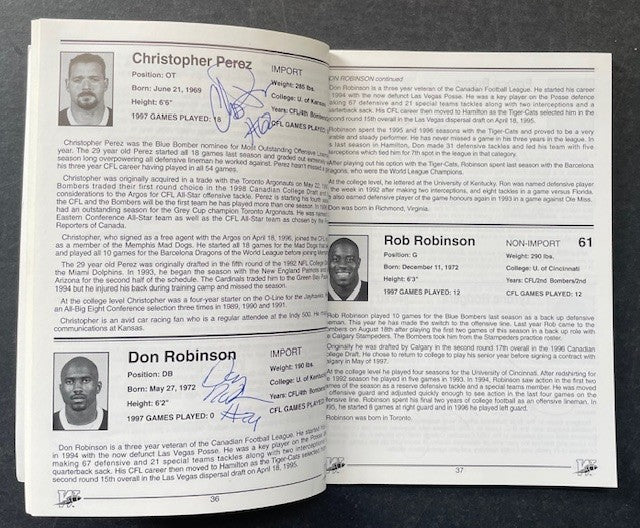 Christopher Perez
IMPORT
Position: OT
Weight: 285 lbs.
Born: June 21, 1969
College: U. of Kansas
Height: 6'6"
Years: CFL/4th Bombers/
1997 GAMES PLAYED: 18
CFL GAMES PLAYED:
Christopher Perez was the Blue Bomber nominee for Most Outstanding Offensive
year. The 29 year old Perez started all 18 games last season and graded out
season long overpowering all defensive lineman he worked against. Perez hasn't missed a
his three year CFL career having played in all 54 games.
Christopher was originally acquired in a trade with the Toronto Argonauts on May 22,
Bombers traded their first round choice in the 1998 Canadian College Draft
considerations to the Argos for CFL All-Star offensive tackle. Perez is starting his fourth
the CFL and the Bombers will be the first team he has played more than one season. In
had an outstanding season for the Grey Cup champion Toronto Argonauts. He was named
Eastern Conference All-Star team as well as the CFL All-Star team as chosen by the
Reporters of Canada.
Christopher, who signed as a free agent with the Argos on April 18, 1996, joined the CFL
as a member of the Memphis Mad Dogs. He started all 18 games for the Mad Dogs
and played all 10 games for the Barcelona Dragons of the World League before joining
The 29 year old Perez was originally drafted in the fifth round of the 1992 NFL College
the Miami Dolphins. In 1993, he began the season with the New England Patriots and
Arizona for the second half of the schedule. The Cardinals traded him to the Green Bay
1994 but he injured his back during training camp and missed the season.
At the college level Christopher was a four-year starter on the O-Line for the Jayhawks
an All-Big Eight Conference selection three times in 1989, 1990 and 1991.
Christopher is an avid car racing fan who is a regular attendee at the Indy 500. He
communications at Kansas.
Don Robinson
IMPORT
Position: DB
Weight: 190 lbs.
Born: May 27, 1972
College: U. of Kentucky
Height: 6'2"
Years: CFL/4th Bombers/
1997 GAMES PLAYED: 0
CFL GAMES PLAYED:
Don Robinson is a three year veteran of the Canadian Football League. He started his
in 1994 with the now defunct Las Vegas Posse. He was a key player on the Posse
making 67 defensive and 21 special teams tackles along with two interceptions
quarterback sack. His CFL career then moved to Hamilton as the Tiger-Cats selected
second round 15th overall in the Las Vegas dispersal draft on April 18, 1995.
36
DON ROBINSON continued
Don Robinson is a three year veteran of the Canadian Football League. He started his career
1994 with the now defunct Las Vegas Posse. He was a key player on the Posse defence
making 67 defensive and 21 special teams tackles along with two interceptions and a
quarterback sack. His CFL career then moved to Hamilton as the Tiger-Cats selected him in the
second round 15th overall in the Las Vegas dispersal draft on April 18, 1995.
Robinson spent the 1995 and 1996 seasons with the Tiger-Cats and proved to be a very
and steady performer. He has never missed a game in his three years in the league. In
last season in Hamilton, Don made 31 defensive tackles and led his team with five
interceptions which tied him for 7th spot in the league in that category.
After playing out his option with the Tiger-Cats, Robinson spent last season with the Barcelona
Dragons, who were the World League Champions.
the college level, he lettered at the University of Kentucky. Ron was named defensive player
the week in 1992 after making two interceptions, and eight tackles in a game versus Florida.
also earned defensive player of the game honours again in 1993 in a game against Ole Miss.
Don was born in Richmond, Virginia.
Rob Robinson
NON-IMPORT 61
Position: G
Weight: 290 lbs.
Born: December 11, 1972
College: U. of Cincinnati
Height: 6'3"
Years: CFL/2nd Bombers/2nd
1997 GAMES PLAYED: 12
CFL GAMES PLAYED: 12
Rob Robinson played 10 games for the Blue Bombers last season as a back up defensive
lineman. This year he has made the switch to the offensive line. Last year Rob came to the
Bombers on August 18th after playing the first two games of this season in a back up role with
the Calgary Stampeders. The Bombers took him from the Stampeders practice roster.
Originally he was drafted by Calgary in the second round 17th overall in the 1996 Canadian
College Draft. He chose to return to college to play his senior year before signing a contract with
Calgary in May of 1997.
At the college level he played four seasons for the University of Cincinnati. After redshirting for
the 1992 season he played in five games in 1993. In 1994, Robinson saw action in the first two
games of the season as a reserve defensive tackle and a special teams member. He was moved
offensive guard and adjusted quickly enough to see action in the last four games on the
offensive line. Robinson spent his final two years of college football as an offensive lineman. In
1995, he started 6 games at right guard and in 1996 he played left guard.
Robinson was born in Toronto.
37